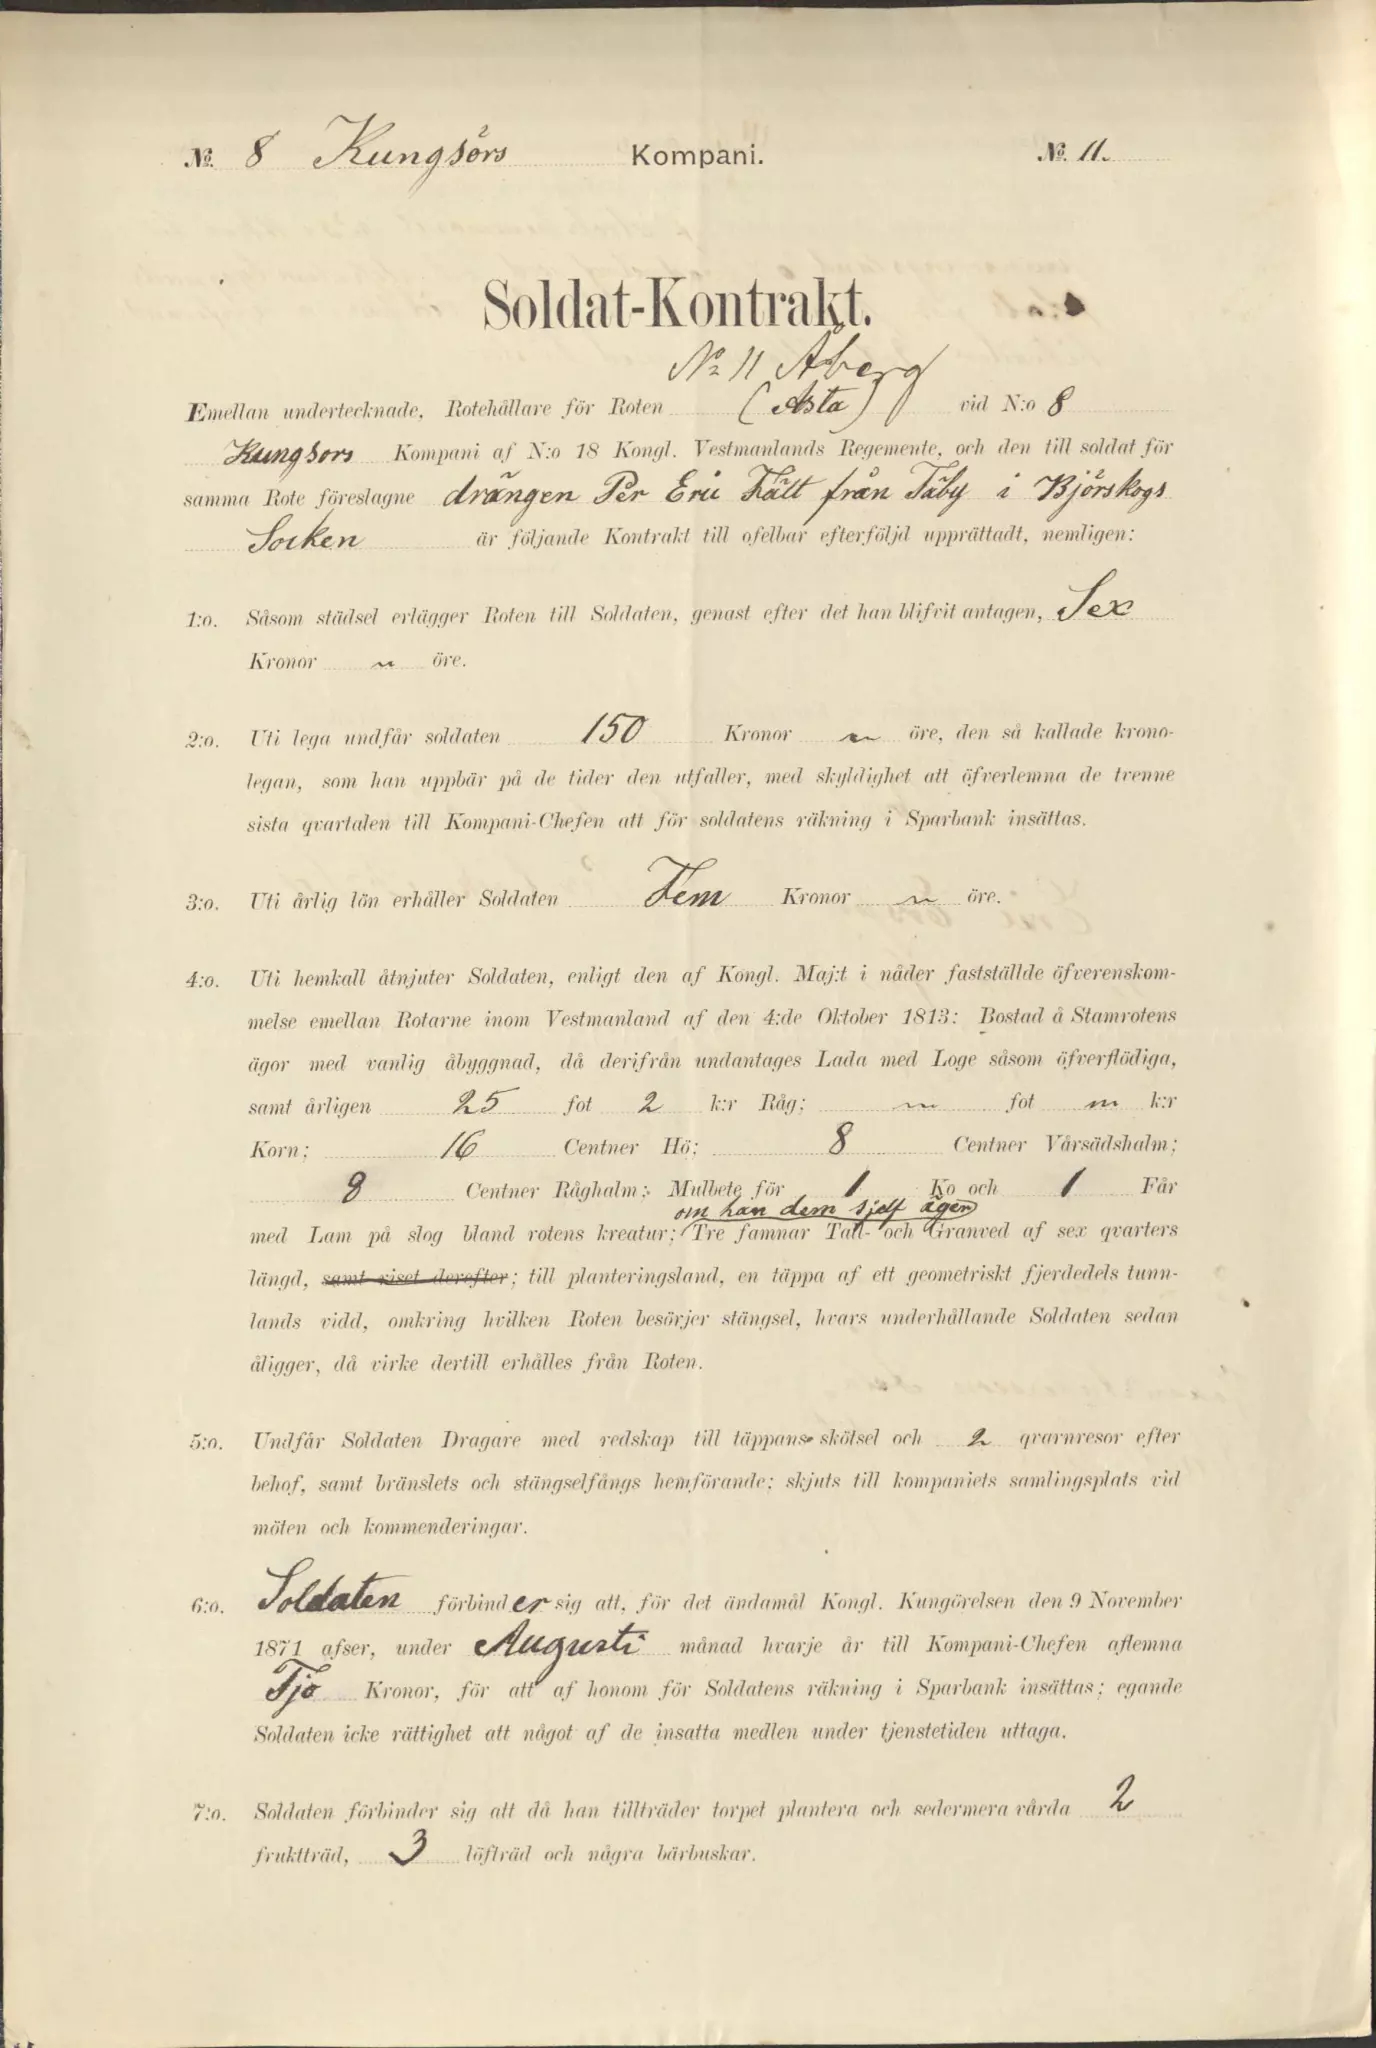 №. 8 Kungsörs Kompani. №. 11.
Soldat-Kontrakt.
No 11 Åberg
Emellan undertecknade, Rotehållare för Roten (Asta) vid N:o 8
Kungsörs Kompani af N:o 18 Kongl. Vestmanlands Regemente, och den till soldat för
samma Rote föreslagne drängen Per Eric Fält från Täby i Björskogs
Socken är följande Kontrakt till ofelbar efterföljd upprättadt, nemligen:
1:o. Såsom städsel erlägger Roten till Soldaten, genast efter det han blifvit antagen, Sex
Kronor " öre.
2:o. Uti lega undfår soldaten 150 Kronor " öre, den så kallade krono-
legan, som han uppbär på de tider den utfaller, med skyldighet att öfverlemna de trenne
sista qvartalen till Kompani-Chefen att för soldatens räkning i Sparbank insättas.
3:o. Uti årlig lön erhåller Soldaten Fem Kronor " öre.
4:o. Uti hemkall åtnjuter Soldaten, enligt den af Kongl. Maj:t i nåder fastställde öfverenskom-
melse emellan Rotarne inom Vestmanland af den 4:de Oktober 1813: Bostad å Stamrotens
ägor med vanlig åbyggnad, då derifrån undantages Lada med Loge såsom öfverflödiga,
samt årligen 25 fot 2 k:r Råg; " fot " k:r
Korn; 16 Centner Hö; 8 Centner Vårsädshalm;
8 Centner Råghalm; Mulbete för 1 Ko och 1 Får
om han dem sjelf äger
med Lam på slog bland rotens kreatur; Tre famnar Tall- och Granved af sex qvarters
längd, samt riset derefter; till planteringsland, en täppa af ett geometriskt fjerdedels tunn-
lands vidd, omkring hvilken Roten besörjer stängsel, hvars underhållande Soldaten sedan
åligger, då virke dertill erhålles från Roten.
5:o. Undfår Soldaten Dragare med redskap till täppans skötsel och 2 qvarnresor efter
behof, samt bränslets och stängselfångs hemförande; skjuts till kompaniets samlingsplats vid
möten och kommenderingar.
6:o. Soldaten förbinder sig att, för det ändamål Kongl. Kungörelsen den 9 November
1871 afser, under Augusti månad hvarje år till Kompani-Chefen aflemna
Tjo Kronor, för att af honom för Soldatens räkning i Sparbank insättas; egande
Soldaten icke rättighet att något af de insatta medlen under tjenstetiden uttaga.
7:o. Soldaten förbinder sig att då han tillträder torpet plantera och sedermera vårda 2
fruktträd, 3 löfträd och några bärbuskar.